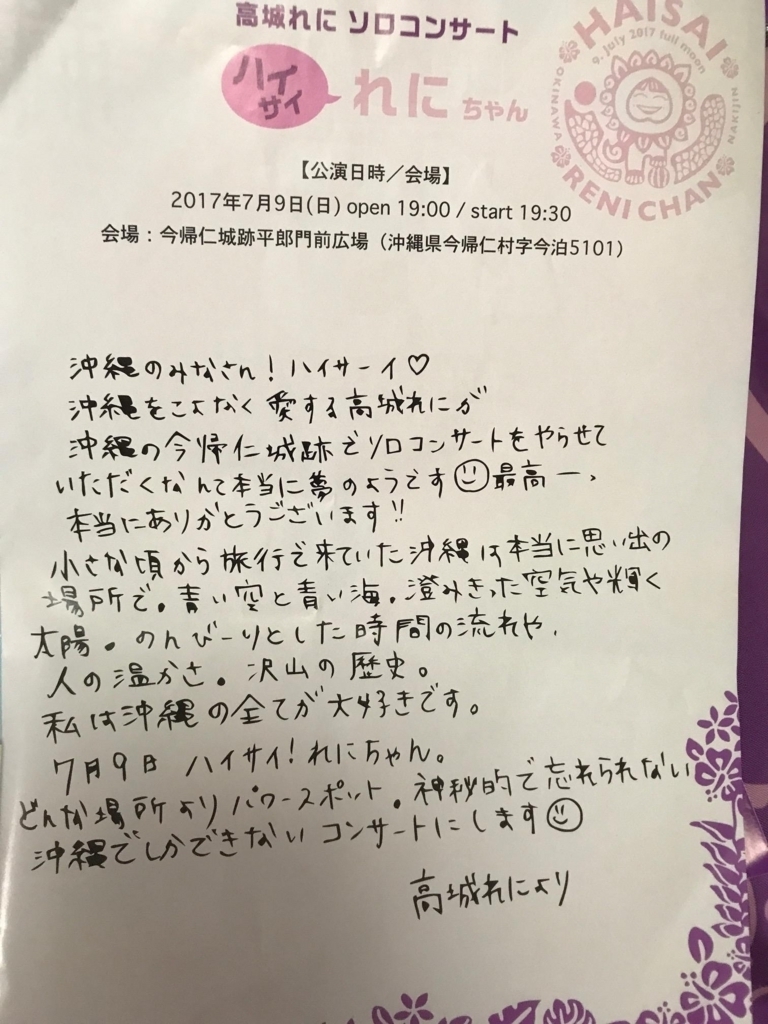 高城れに ソロコンサート
ハイサイ れにちゃん
HAISAI
9. July 2017 full moon
OKINAWA
NAKIJIN
RENI CHAN
【公演日時／会場】
2017年7月9日(日) open 19:00 / start 19:30
会場：今帰仁城跡平郎門前広場（沖縄県今帰仁村字今泊5101）
沖縄のみなさん！ハイサーイ♡
沖縄をこよなく愛する高城れにが
沖縄の今帰仁城跡でソロコンサートをやらせて
いただくなんて本当に夢のようです☺最高ー、
本当にありがとうございます!!
小さな頃から旅行で来ていた沖縄は本当に思い出の
場所で。青い空と青い海。澄みきった空気や輝く
太陽。のんびーりとした時間の流れや、
人の温かさ。沢山の歴史。
私は沖縄の全てが大好きです。
7月9日 ハイサイ！れにちゃん。
どんな場所よりパワースポット。神秘的で忘れられない
沖縄でしかできないコンサートにします☺
高城れにより